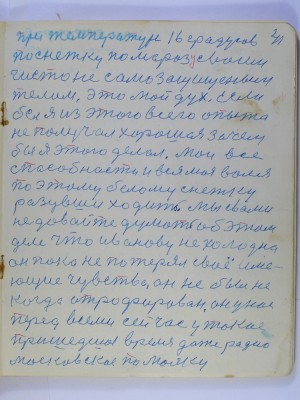 при температуре 16 градусов
по снежку по марозу с своим
чисто не само защищеным
телом, это мой дух. Если
бы я из этого всего опыта
не получал хорошая зачем
бы я этого делал. Мои все
способности и вся моя воля
по этому белому снежку
разувши ходить мы с вами
не давайте думать об этом
деле что Иванову не холодна
он пока не потерял своё име-
ющие чувства, он не был не
когда атрофирован, он у нас
перед всеми сейчас у такое
пришедшая время даже радио
московское по маяку